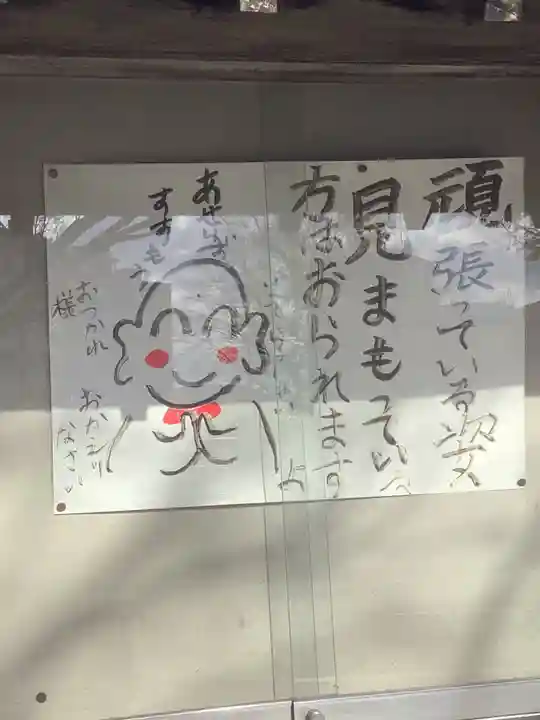 頑張っている姿
見まもっている
方はおられます
よ
あせらず
すすもう
おつかれ
様
おかえり
なさい